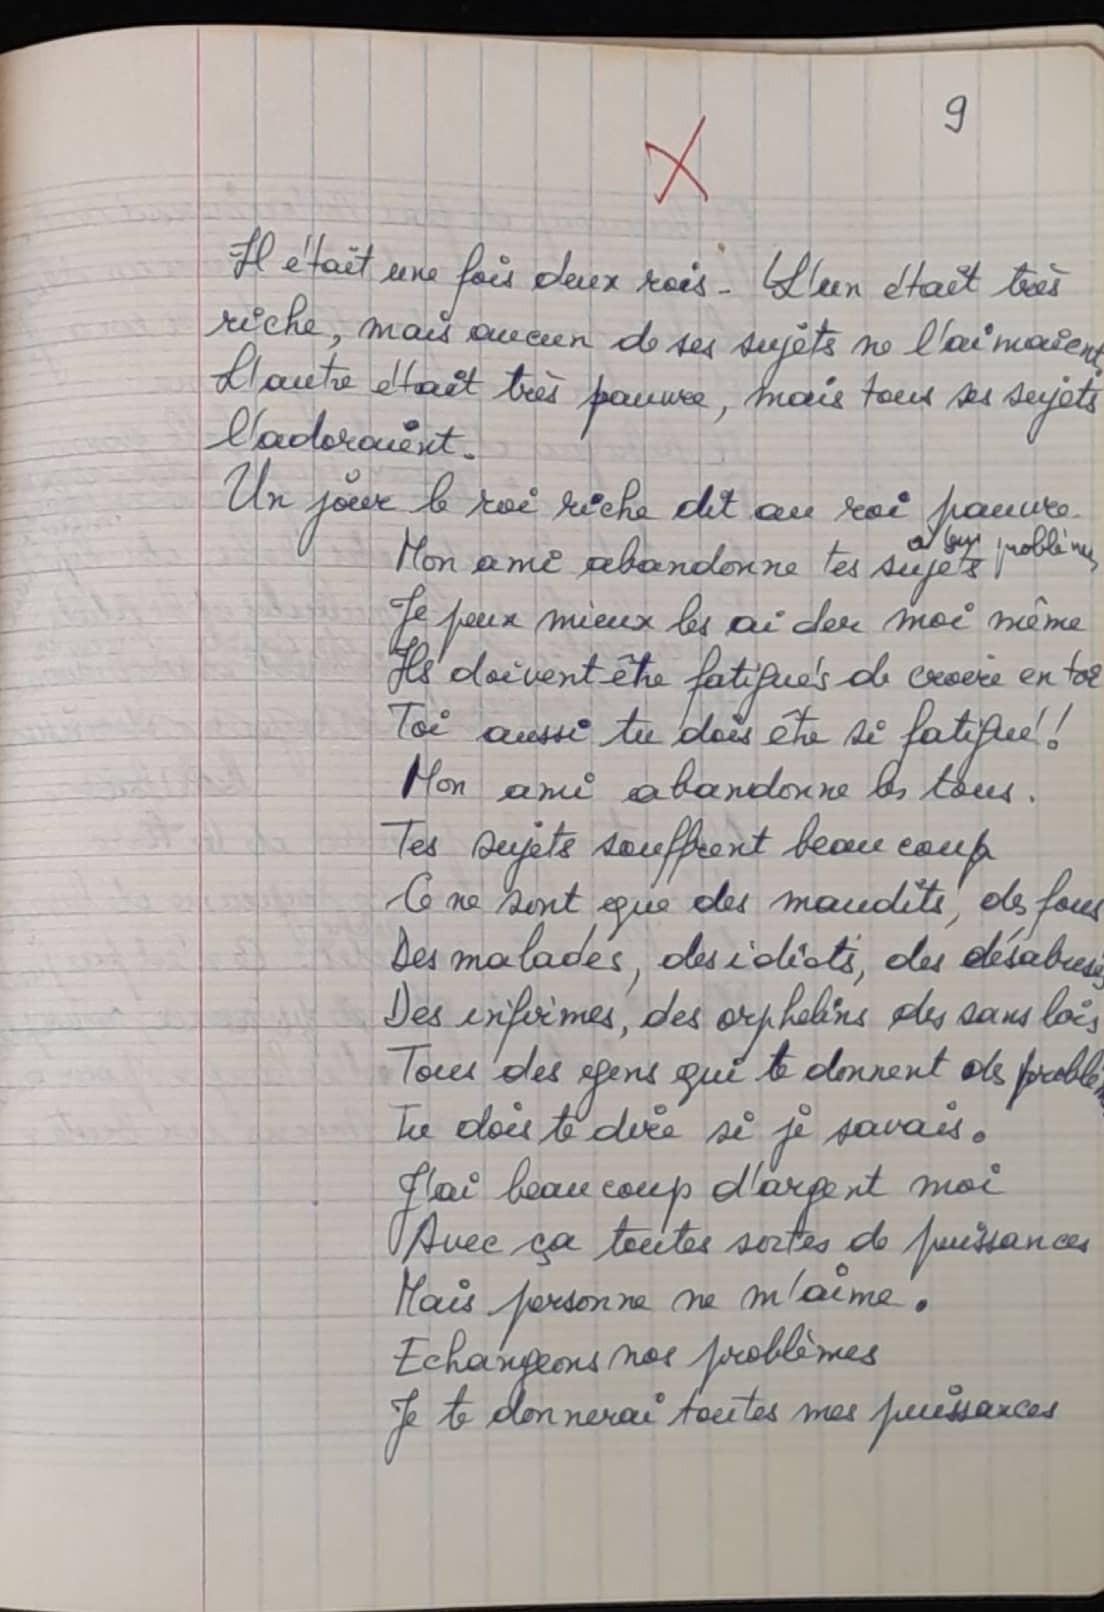 9
X
Il était une fois deux rois. L'un était très
riche, mais aucun de ses sujets ne l'aimaient.
L'autre était très pauvre, mais tous ses sujets
l'adoraient.
Un jour le roi riche dit au roi pauvre.
Mon ami abandonne tes sujets à leurs problèmes
Je peux mieux les aider moi même
Ils doivent être fatigués de croire en toi
Toi aussi tu dois être si fatigué!
Mon ami abandonne les tous.
Tes sujets souffrent beaucoup
Ce ne sont que des maudits, des fous
Des malades, des idiots, des désabusés
Des infirmes, des orphelins des sans lois
Tous des gens qui te donnent des problèmes
Tu dois te dire si je savais.
J'ai beaucoup d'argent moi
Avec ça toutes sortes de puissances
Mais personne ne m'aime.
Echangeons nos problèmes
Je te donnerai toutes mes puissances